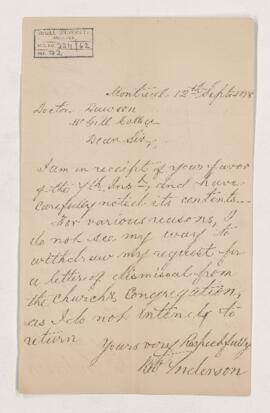 McGILL UNIVERSITY
ARCHIVES
ACC. NO. 224/62
REF. 42
Montreal 12th Sept
Doctor Dawson
McGill College
Dear Sir,
I am in receipt of your favor
of the 7th Inst, and have
carefully noted its contents.
For various reasons, I
do not see my way to
withdraw my request for
a letter of dismissal from
the church & Congregation,
as I do not intend to
return
Yours very Respectfully
Rbt Anderson